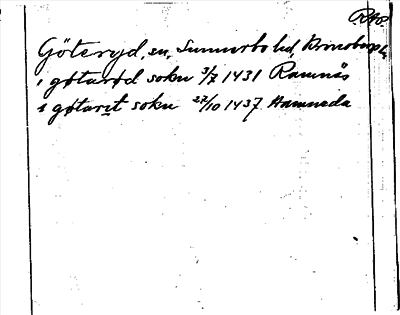 RAp.
Göteryd, sn, Sunnerbo hd, Kronobergs l.
i gøtarød sokn 3/7 1431 Ramnäs
i gøtarit sokn 27/10 1437 Hamneda